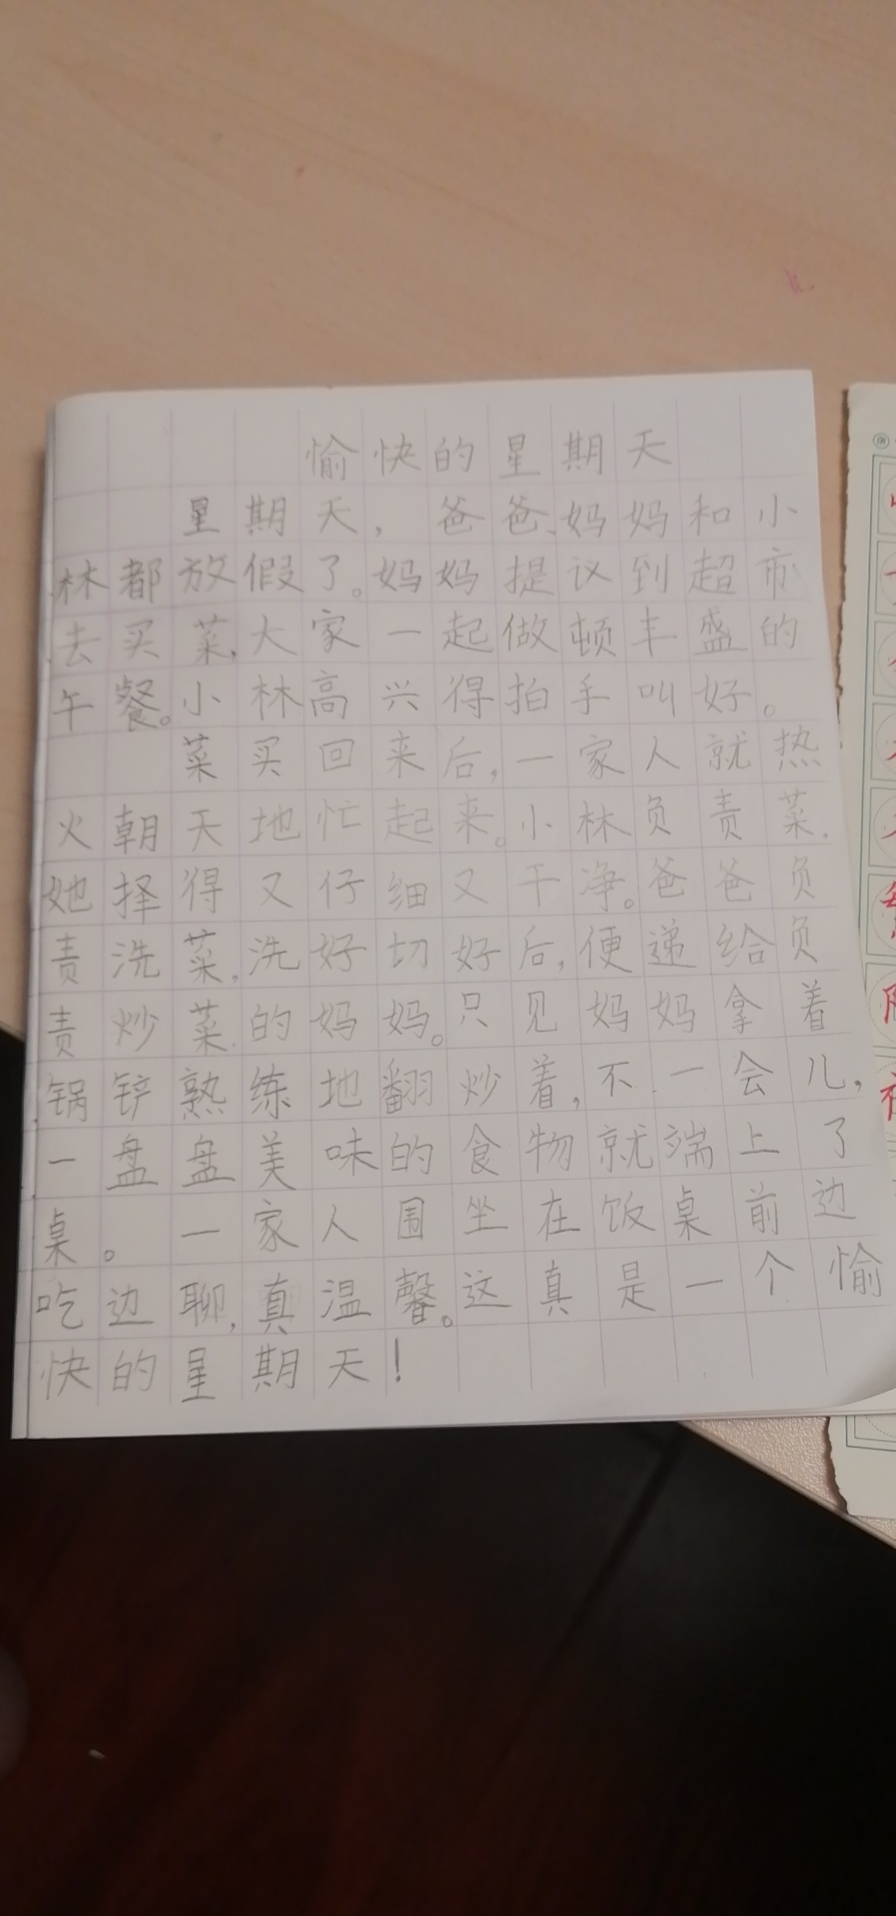 愉快的星期天
星期天，爸爸、妈妈和小
林都放假了。妈妈提议到超市
去买菜，大家一起做顿丰盛的
午餐。小林高兴得拍手叫好。
菜买回来后，一家人就热
火朝天地忙起来。小林负责菜，
她择得又仔细又干净。爸爸负
责洗菜，洗好切好后，便递给负
责炒菜的妈妈。只见妈妈拿着
锅铲熟练地翻炒着，不一会儿，
一盘盘美味的食物就端上了
桌。一家人围坐在饭桌前边
吃边聊，真温馨。这真是一个愉
快的星期天！